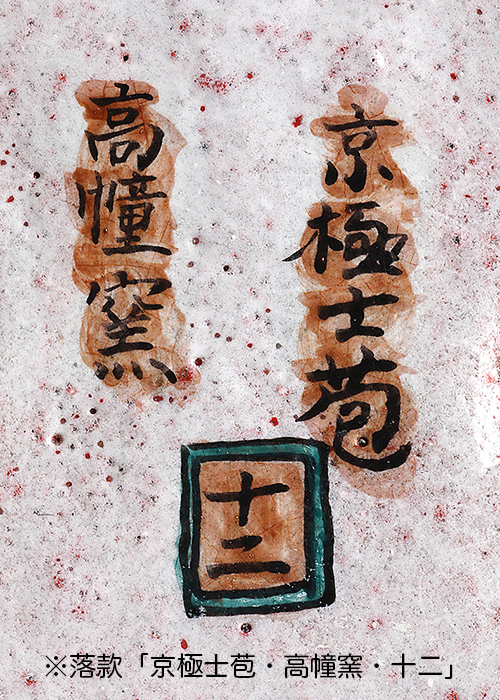 京極士苞
高幢窯
十二
※落款「京極士苞・高幢窯・十二」